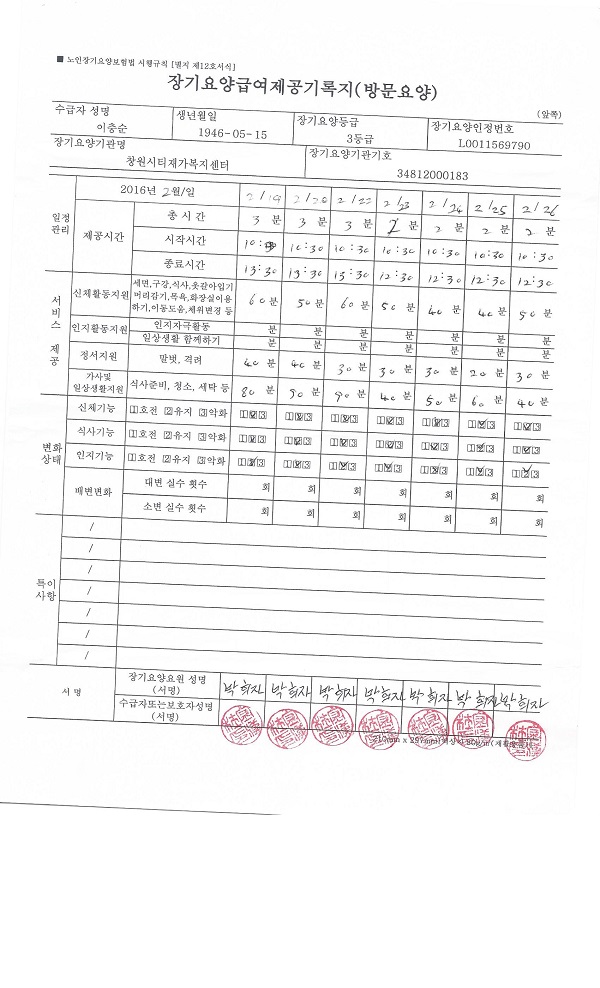 ■ 노인장기요양보험법 시행규칙 [별지 제12호서식]
장기요양급여제공기록지(방문요양)
(앞쪽)
수급자 성명 생년월일 장기요양등급 장기요양인정번호
이충순 1946-05-15 3등급 L0011569790
장기요양기관명 장기요양기관기호
창원시티재가복지센터 34812000183
일정관리 2016년 2월/일 2/19 2/20 2/22 2/23 2/24 2/25 2/26
제공시간 총 시 간 3 분 3 분 3 분 2 분 2 분 2 분 2 분
시작시간 10:30 10:30 10:30 10:30 10:30 10:30 10:30
종료시간 13:30 13:30 13:30 12:30 12:30 12:30 12:30
서비스 제공
신체활동지원 세면,구강,식사,옷갈아입기 머리감기,목욕,화장실이용 하기,이동도움,체위변경 등 60 분 50 분 60 분 50 분 40 분 40 분 50 분
인지활동지원 인지자극활동 분 분 분 분 분 분 분
일상생활 함께하기 분 분 분 분 분 분 분
정서지원 말벗, 격려 40 분 40 분 30 분 30 분 30 분 20 분 30 분
가사및 일상생활지원 식사준비, 청소, 세탁 등 80 분 90 분 90 분 40 분 50 분 60 분 40 분
변화상태
신체기능 1호전 2유지 3악화 123 123 123 123 123 123 123
식사기능 1호전 2유지 3악화 123 123 123 123 123 123 123
인지기능 1호전 2유지 3악화 123 123 123 123 123 123 123
배변변화 대변 실수 횟수 회 회 회 회 회 회 회
소변 실수 횟수 회 회 회 회 회 회 회
특이사항
/
/
/
/
/
/
/
서 명 장기요양요원 성명 (서명) 박희자 박희자 박희자 박희자 박희자 박희자 박희자
수급자또는보호자성명 (서명)